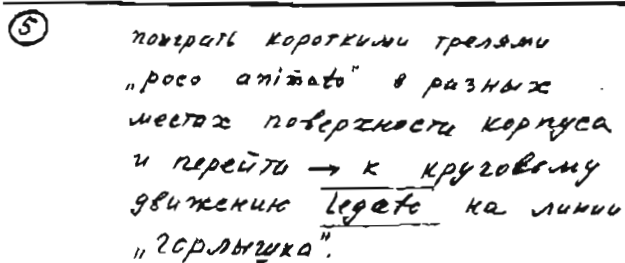 ⑤ поиграть короткими трелями
„poco animato" в разных
местах поверхности корпуса
и перейти → к круговому
движению legato на линии
„горлышка".